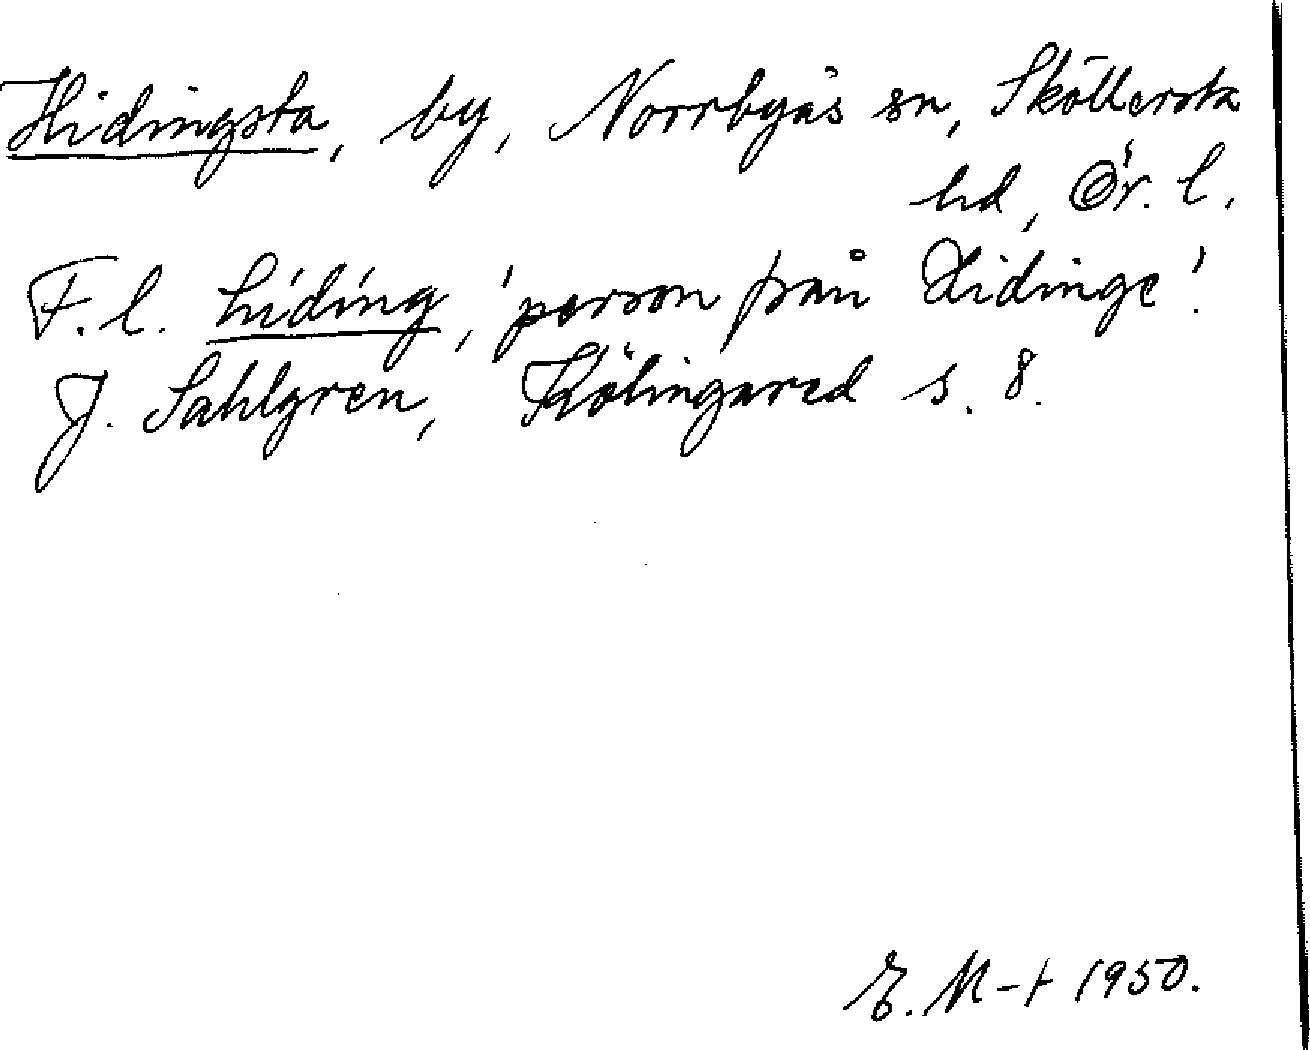 Hidingsta, by, Norrbyås sn, Sköllersta
hd, Ör. l.
F. l. hiding, 'person från Hidinge'.
J. Sahlgren, Kölingared s. 8.
E. M-t 1950.